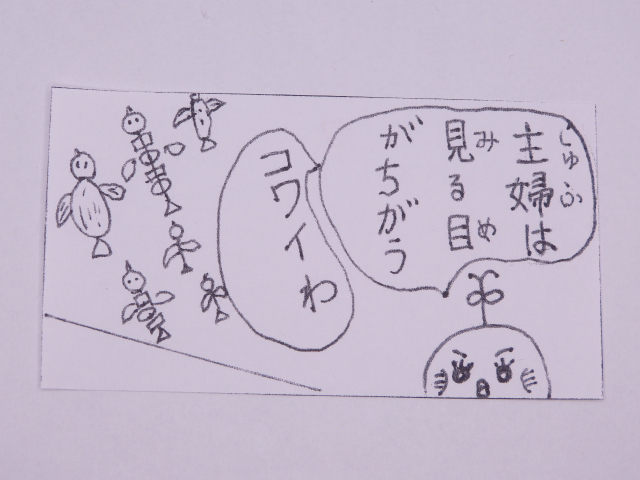 主婦は
しゅふ
見る目
み
め
がちがう
コワイわ